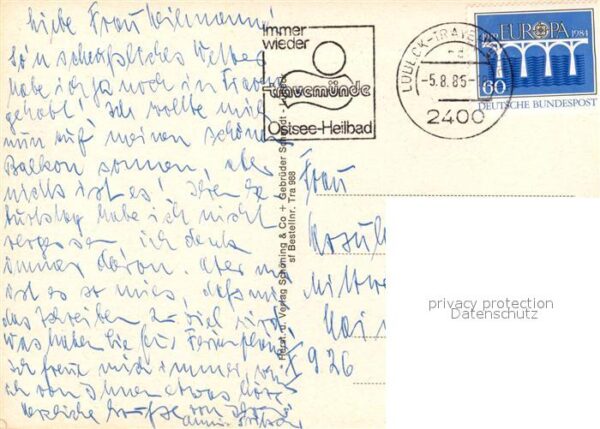 Liebe Frau Heilmann!
So'n scheußliches Wetter
habe ich ja noch in Trave
gehabt! Ich wollte mich
nun auf meinen schönen
Balkon sonnen, aber
nichts ist es! Ihren Ge
burtstag habe ich nicht
vergessen ich denk
immer daran. Aber mir
ist es so mies, daß mir
das Schreiben zu viel wird.
Was haben Sie für Ferienpläne
Ich freue mich immer, wenn
ich von Ihnen etwas höre
Herzliche Grüße von
Immer
wieder
travemünde
Ostsee-Heilbad
LÜBECK-TRAVEM
-5.8.85-
2400
EUROPA
1984
60
DEUTSCHE BUNDESPOST
Herst. u. Verlag Schöning & Co + Gebrüder Schmidt - Lübeck
sf Bestellnr. Tra 988
Frau
Ursul
Mittwe
926
privacy protection
Datenschutz